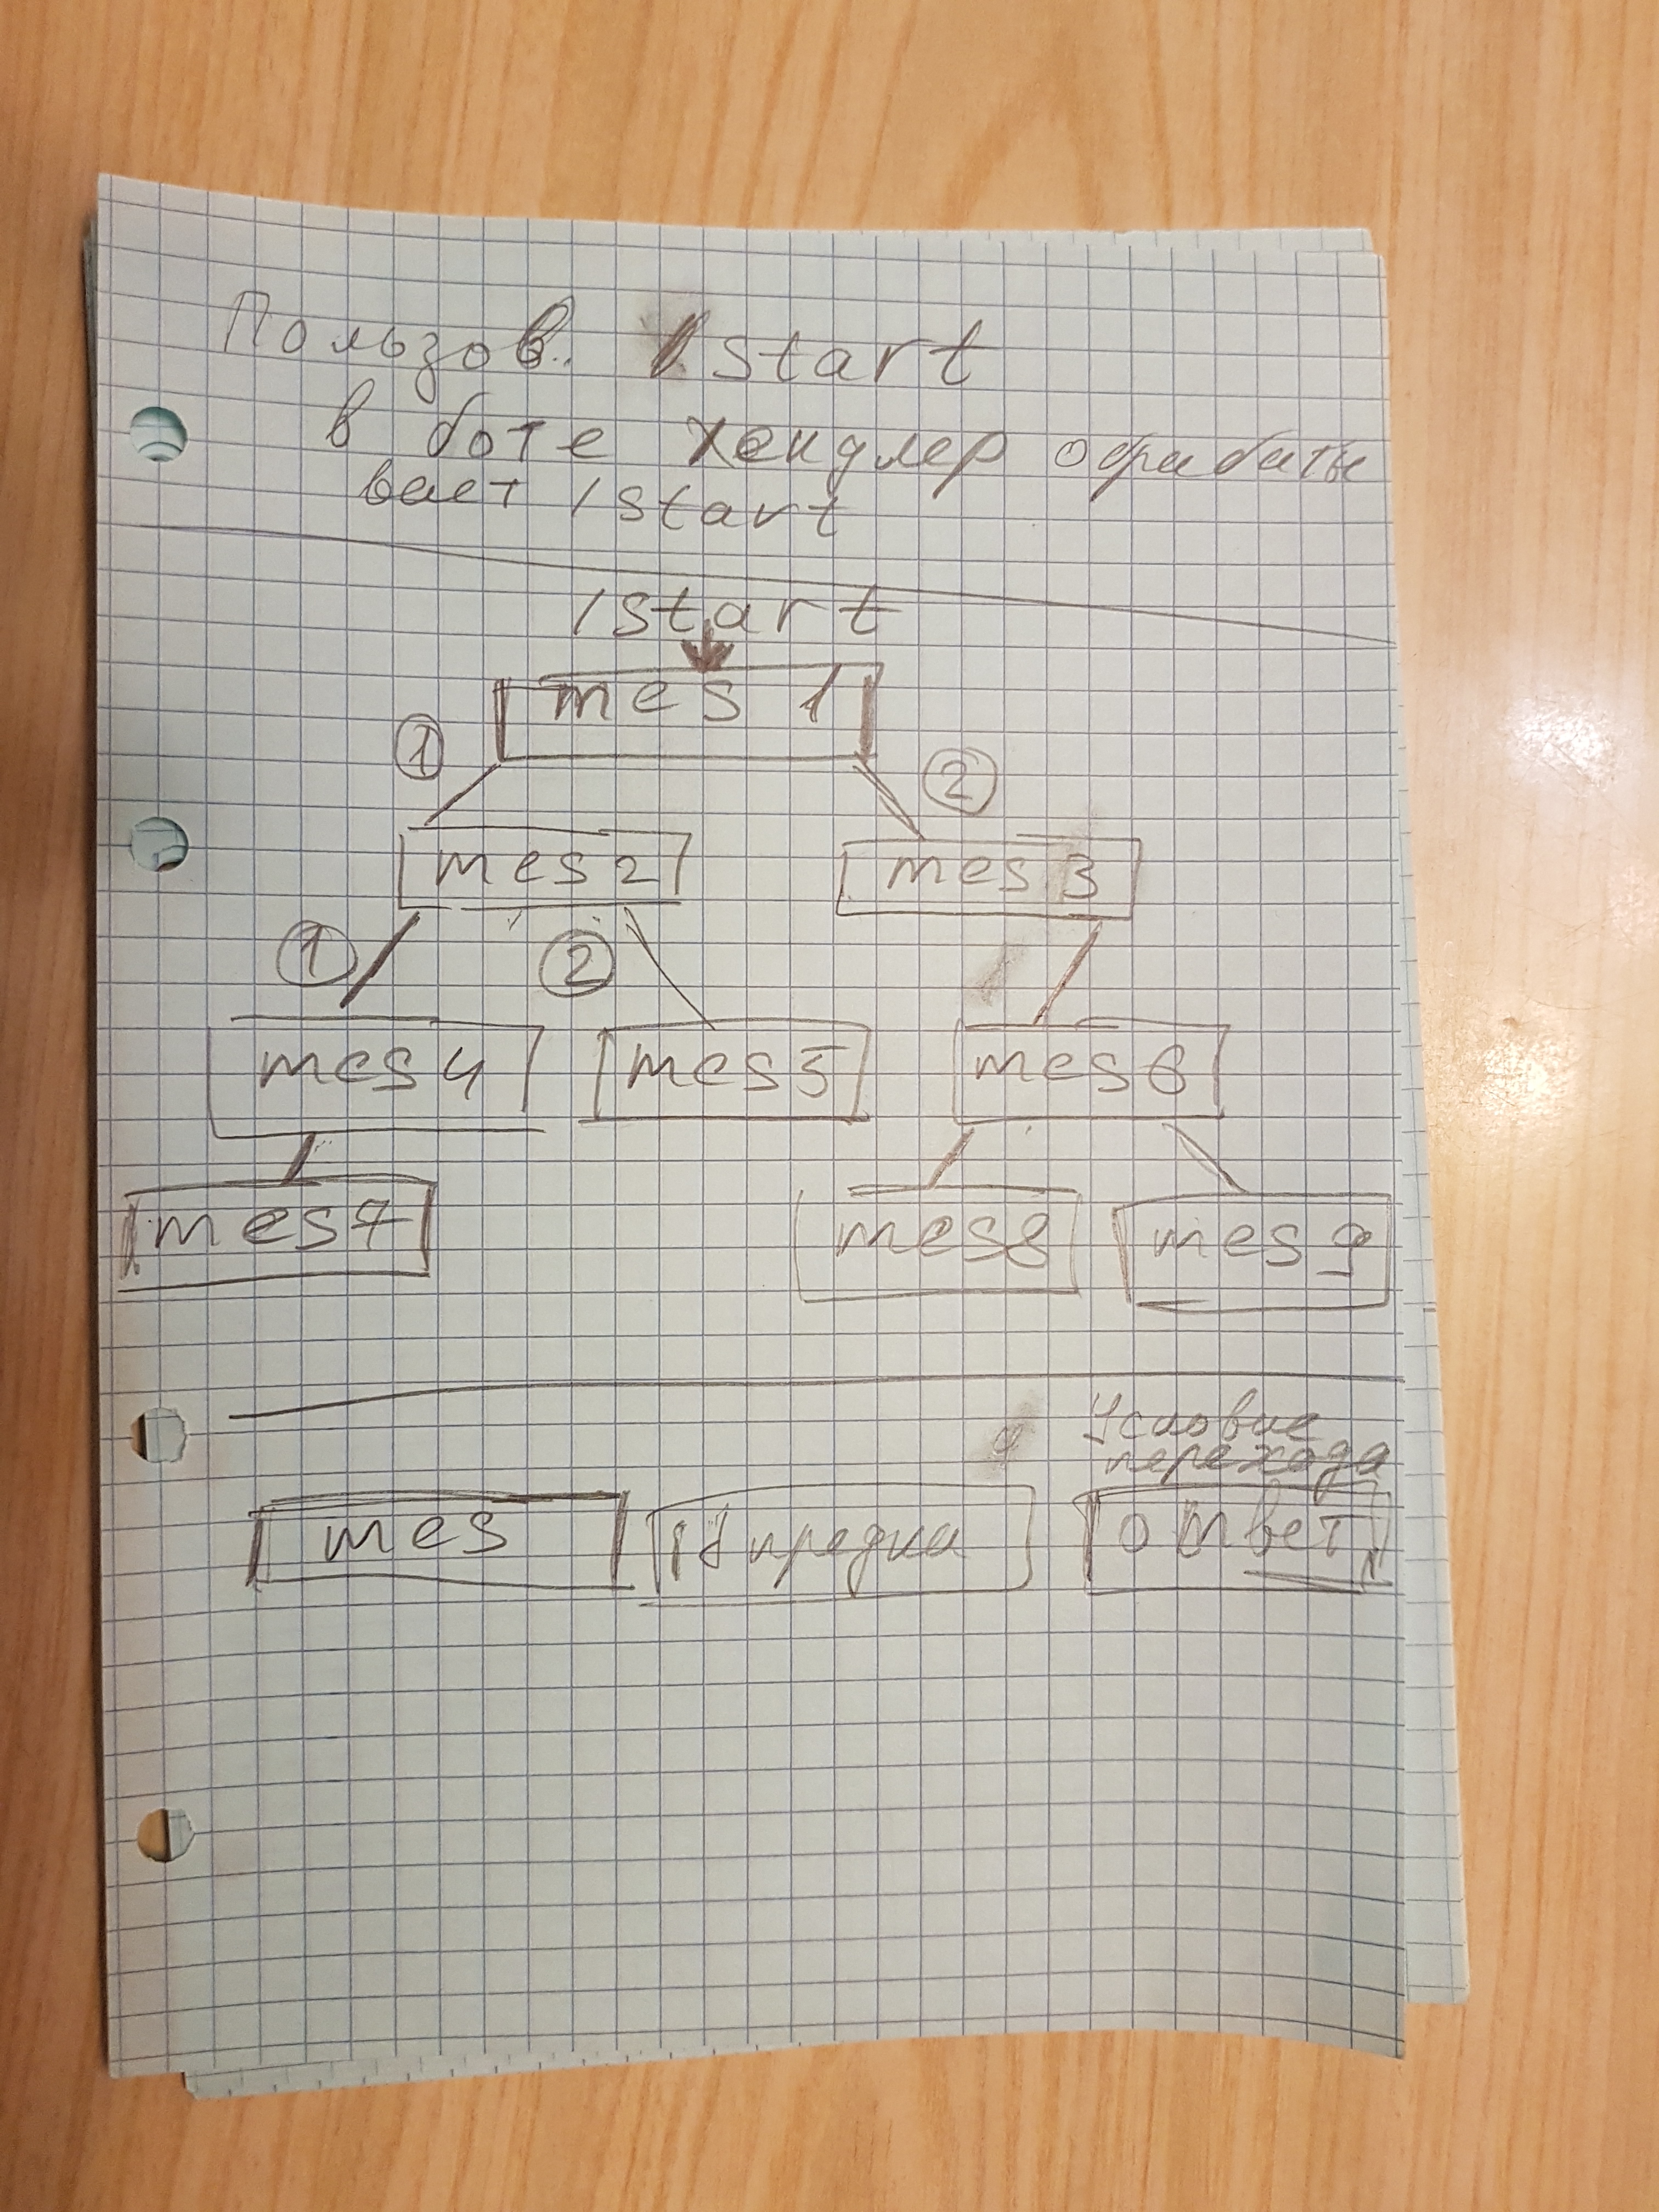 Пользов. /start
в боте хендлер обрабаты
вает /start
/start
mes 1
① ②
mes2 mes 3
① ②
mes4 mes5 mes6
mes7 mes8 mes9
Условие
перехода
mes id предка ответ